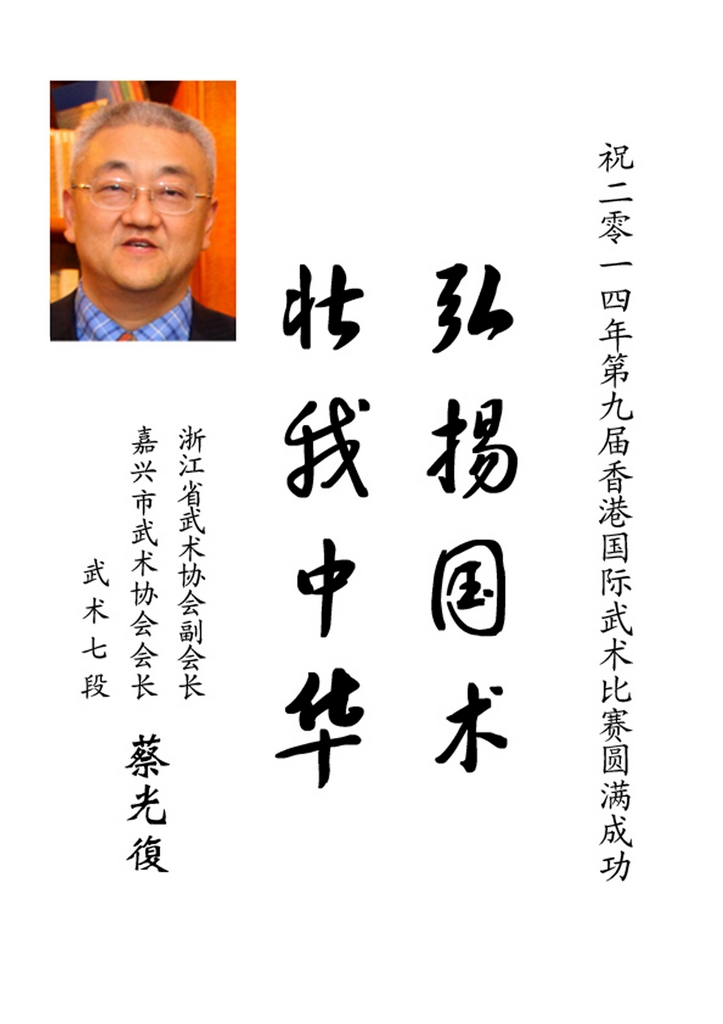 祝二零一四年第九届香港国际武术比赛圆满成功
弘揚国术
壮我中华
浙江省武术协会副会长
嘉兴市武术协会会长
武术七段
蔡光復